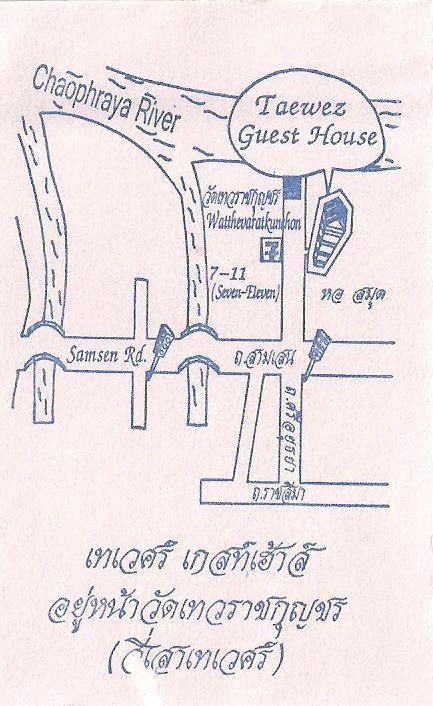 Chaophraya River
Taewez
Guest House
วัดเทวราชกุญชร
Watthevaratkunchon
7
7-11
(Seven-Eleven)
หอ สมุด
Samsen Rd.
ถ.สามเสน
ถ.ศรีอยุธยา
ถ.ราชสีมา
เทเวศร์ เกสท์เฮ้าส์
อยู่หน้าวัดเทวราชกุญชร